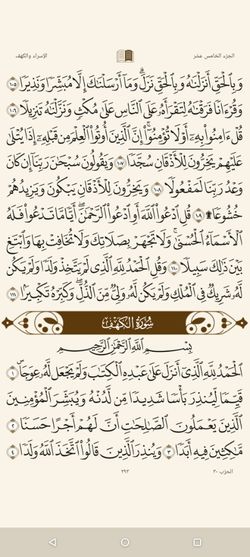 الجزء الخامس عشر الإسراء والكهف
وَبِالْحَقِّ أَنزَلْنَٰهُ وَبِالْحَقِّ نَزَلَ ۗ وَمَآ أَرْسَلْنَٰكَ إِلَّا مُبَشِّرًا وَنَذِيرًا ١٠٥
وَقُرْءَانًا فَرَقْنَٰهُ لِتَقْرَأَهُۥ عَلَى النَّاسِ عَلَىٰ مُكْثٍ وَنَزَّلْنَٰهُ تَنزِيلًا ١٠٦
قُلْ ءَامِنُوا۟ بِهِۦٓ أَوْ لَا تُؤْمِنُوٓا۟ ۚ إِنَّ الَّذِينَ أُوتُوا۟ الْعِلْمَ مِن قَبْلِهِۦٓ إِذَا يُتْلَىٰ
عَلَيْهِمْ يَخِرُّونَ لِلْأَذْقَانِ سُجَّدًا ١٠٧ وَيَقُولُونَ سُبْحَٰنَ رَبِّنَآ إِن كَانَ
وَعْدُ رَبِّنَا لَمَفْعُولًا ١٠٨ وَيَخِرُّونَ لِلْأَذْقَانِ يَبْكُونَ وَيَزِيدُهُمْ
خُشُوعًا ۩ ١٠٩ قُلِ ادْعُوا۟ اللَّهَ أَوِ ادْعُوا۟ الرَّحْمَٰنَ ۖ أَيًّا مَّا تَدْعُوا۟ فَلَهُ
الْأَسْمَآءُ الْحُسْنَىٰ ۚ وَلَا تَجْهَرْ بِصَلَاتِكَ وَلَا تُخَافِتْ بِهَا وَابْتَغِ
بَيْنَ ذَٰلِكَ سَبِيلًا ١١٠ وَقُلِ الْحَمْدُ لِلَّهِ الَّذِى لَمْ يَتَّخِذْ وَلَدًا وَلَمْ يَكُن
لَّهُۥ شَرِيكٌ فِى الْمُلْكِ وَلَمْ يَكُن لَّهُۥ وَلِىٌّ مِّنَ الذُّلِّ ۖ وَكَبِّرْهُ تَكْبِيرًۢا ١١١
سُورَةُ الْكَهْفِ
بِسْمِ اللَّهِ الرَّحْمَٰنِ الرَّحِيمِ
الْحَمْدُ لِلَّهِ الَّذِىٓ أَنزَلَ عَلَىٰ عَبْدِهِ الْكِتَٰبَ وَلَمْ يَجْعَل لَّهُۥ عِوَجَا ۜ ١
قَيِّمًا لِّيُنذِرَ بَأْسًا شَدِيدًا مِّن لَّدُنْهُ وَيُبَشِّرَ الْمُؤْمِنِينَ
الَّذِينَ يَعْمَلُونَ الصَّٰلِحَٰتِ أَنَّ لَهُمْ أَجْرًا حَسَنًا ٢
مَّٰكِثِينَ فِيهِ أَبَدًا ٣ وَيُنذِرَ الَّذِينَ قَالُوا۟ اتَّخَذَ اللَّهُ وَلَدًا ٤
الحزب ٣٠ ٢٩٣